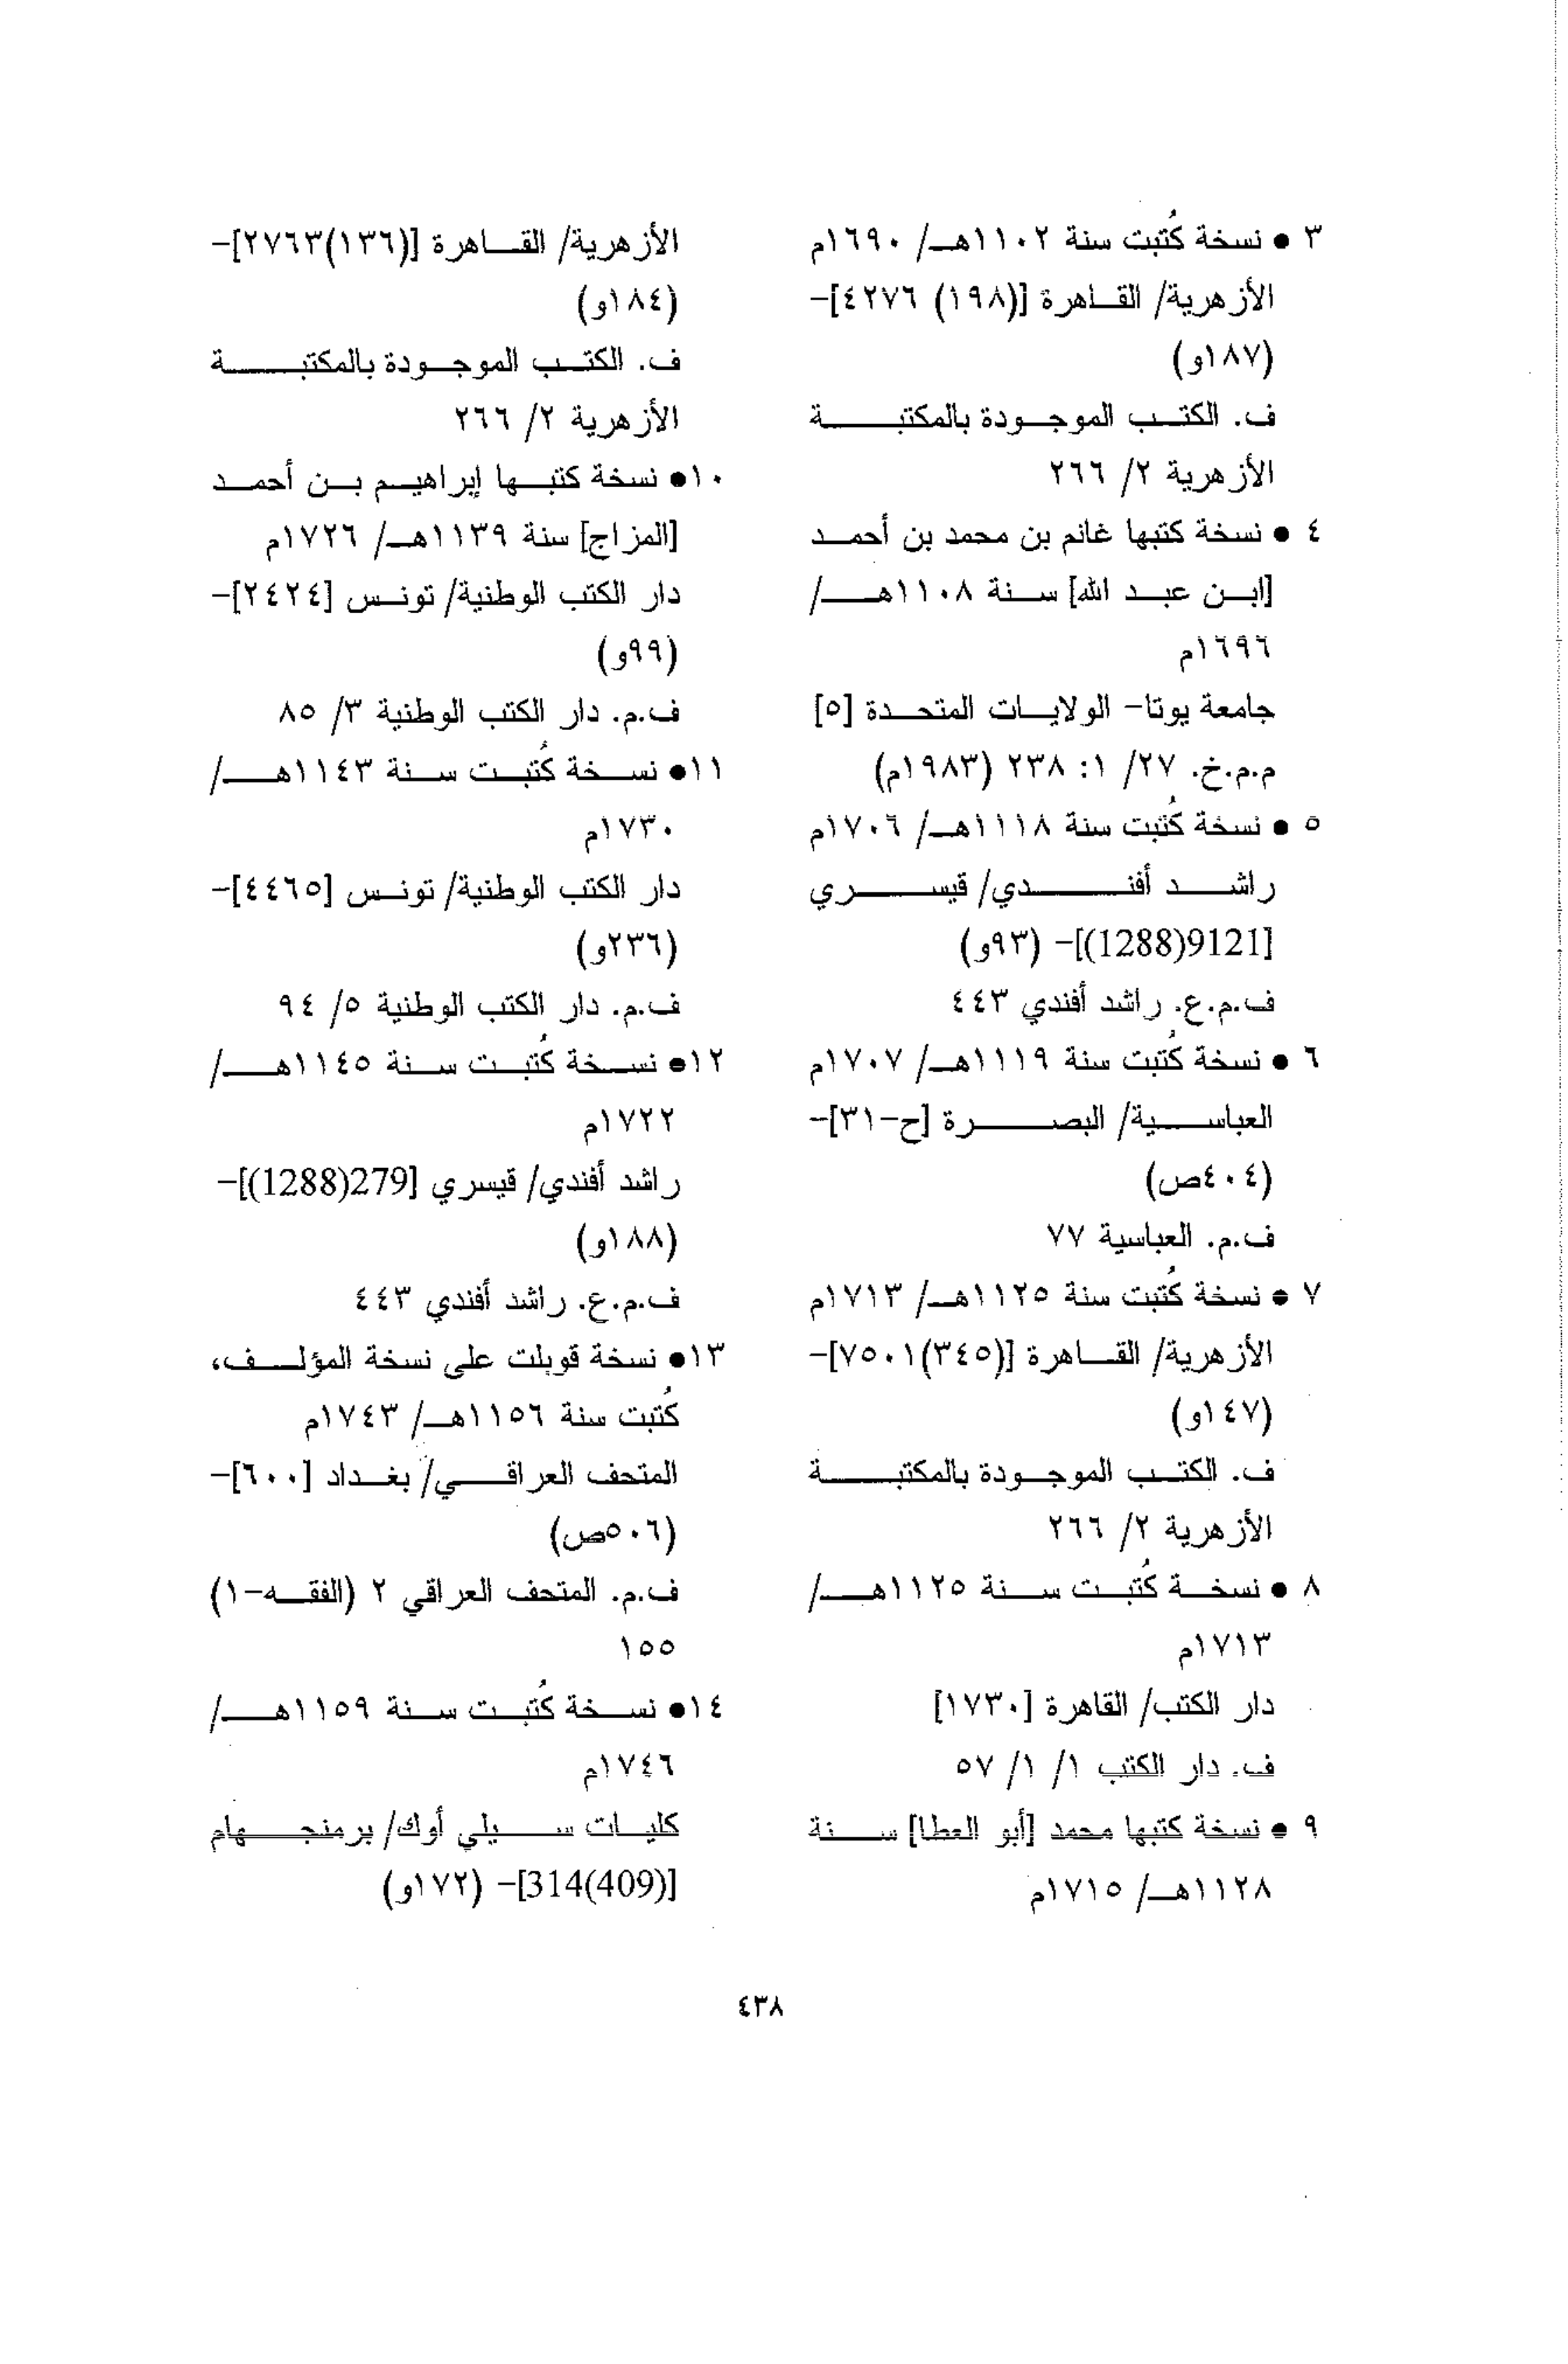 ٣ ● نسخة كُتبت سنة ١١٠٢هـ/ ١٦٩٠م
الأزهرية/ القاهرة [(١٩٨) ٤٢٧٦]-
(١٨٧و)
ف. الكتب الموجودة بالمكتبة
الأزهرية ٢/ ٢٦٦
٤ ● نسخة كتبها غانم بن محمد بن أحمد
[ابن عبد الله] سنة ١١٠٨هـ/
١٦٩٦م
جامعة يوتا- الولايات المتحدة [٥]
م.م.خ. ٢٧/ ١: ٢٣٨ (١٩٨٣م)
٥ ● نسخة كُتبت سنة ١١١٨هـ/ ١٧٠٦م
راشد أفندي/ قيسري
[9121(1288)]- (٩٣و)
ف.م.ع. راشد أفندي ٤٤٣
٦ ● نسخة كُتبت سنة ١١١٩هـ/ ١٧٠٧م
العباسية/ البصرة [ح-٣١]-
(٤٠٤ص)
ف.م. العباسية ٧٧
٧ ● نسخة كُتبت سنة ١١٢٥هـ/ ١٧١٣م
الأزهرية/ القاهرة [(٣٤٥)٧٥٠١]-
(١٤٧و)
ف. الكتب الموجودة بالمكتبة
الأزهرية ٢/ ٢٦٦
٨ ● نسخة كُتبت سنة ١١٢٥هـ/
١٧١٣م
دار الكتب/ القاهرة [١٧٣٠]
ف. دار الكتب ١/ ١/ ٥٧
٩ ● نسخة كتبها محمد [أبو العطا] سنة
١١٢٨هـ/ ١٧١٥م
الأزهرية/ القاهرة [(١٣٦)٢٧٦٣]-
(١٨٤و)
ف. الكتب الموجودة بالمكتبة
الأزهرية ٢/ ٢٦٦
١٠● نسخة كتبها إبراهيم بن أحمد
[المزاج] سنة ١١٣٩هـ/ ١٧٢٦م
دار الكتب الوطنية/ تونس [٢٤٢٤]-
(٩٩و)
ف.م. دار الكتب الوطنية ٣/ ٨٥
١١● نسخة كُتبت سنة ١١٤٣هـ/
١٧٣٠م
دار الكتب الوطنية/ تونس [٤٤٦٥]-
(٢٣٦و)
ف.م. دار الكتب الوطنية ٥/ ٩٤
١٢● نسخة كُتبت سنة ١١٤٥هـ/
١٧٢٢م
راشد أفندي/ قيسري [279(1288)]-
(١٨٨و)
ف.م.ع. راشد أفندي ٤٤٣
١٣● نسخة قوبلت على نسخة المؤلف،
كُتبت سنة ١١٥٦هـ/ ١٧٤٣م
المتحف العراقي/ بغداد [٦٠٠]-
(٥٠٦ص)
ف.م. المتحف العراقي ٢ (الفقه-١)
١٥٥
١٤● نسخة كُتبت سنة ١١٥٩هـ/
١٧٤٦م
كليات سيلي أوك/ برمنجهام
[314(409)]- (١٧٢و)
٤٣٨